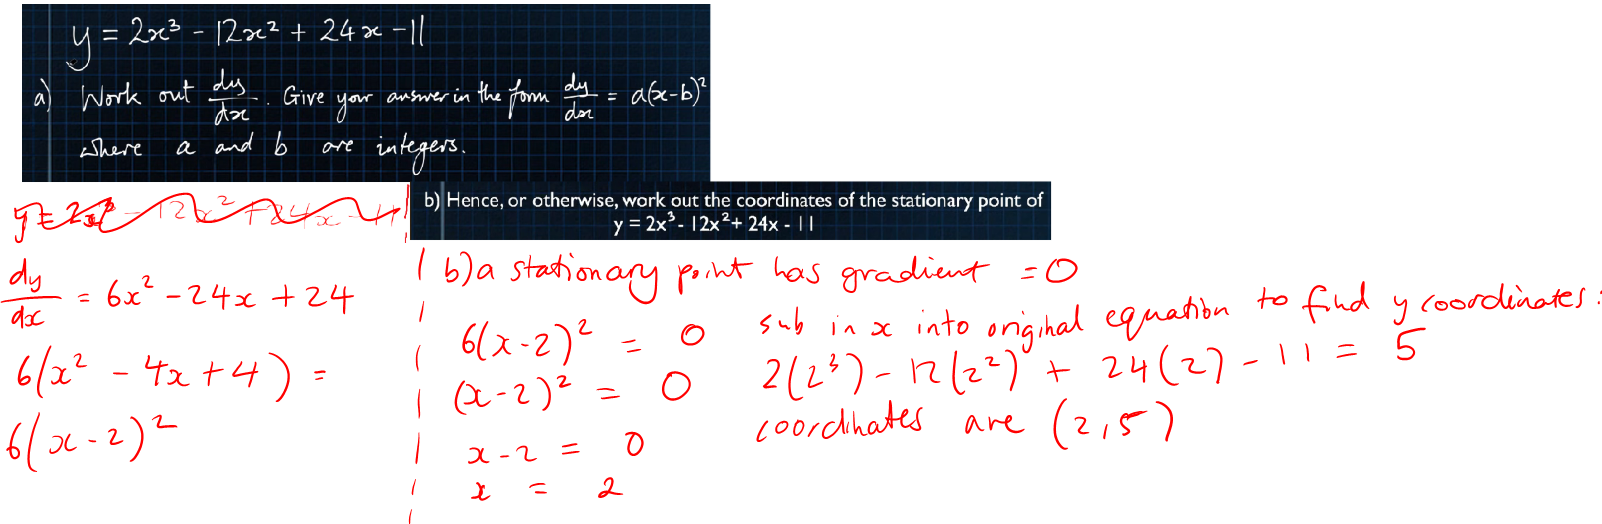 y = 2x³ - 12x² + 24x - 11
a) Work out dy/dx. Give your answer in the form dy/dx = a(x-b)²
where a and b are integers.
y = 2x³ - 12x² + 24x - 11
dy/dx = 6x² - 24x + 24
6(x² - 4x + 4) =
6(x - 2)²
b) Hence, or otherwise, work out the coordinates of the stationary point of
y = 2x³ - 12x² + 24x - 11
b) a stationary point has gradient = 0
6(x-2)² = 0
(x-2)² = 0
x - 2 = 0
x = 2
sub in x into original equation to find y coordinates:
2(2³) - 12(2²) + 24(2) - 11 = 5
coordinates are (2,5)